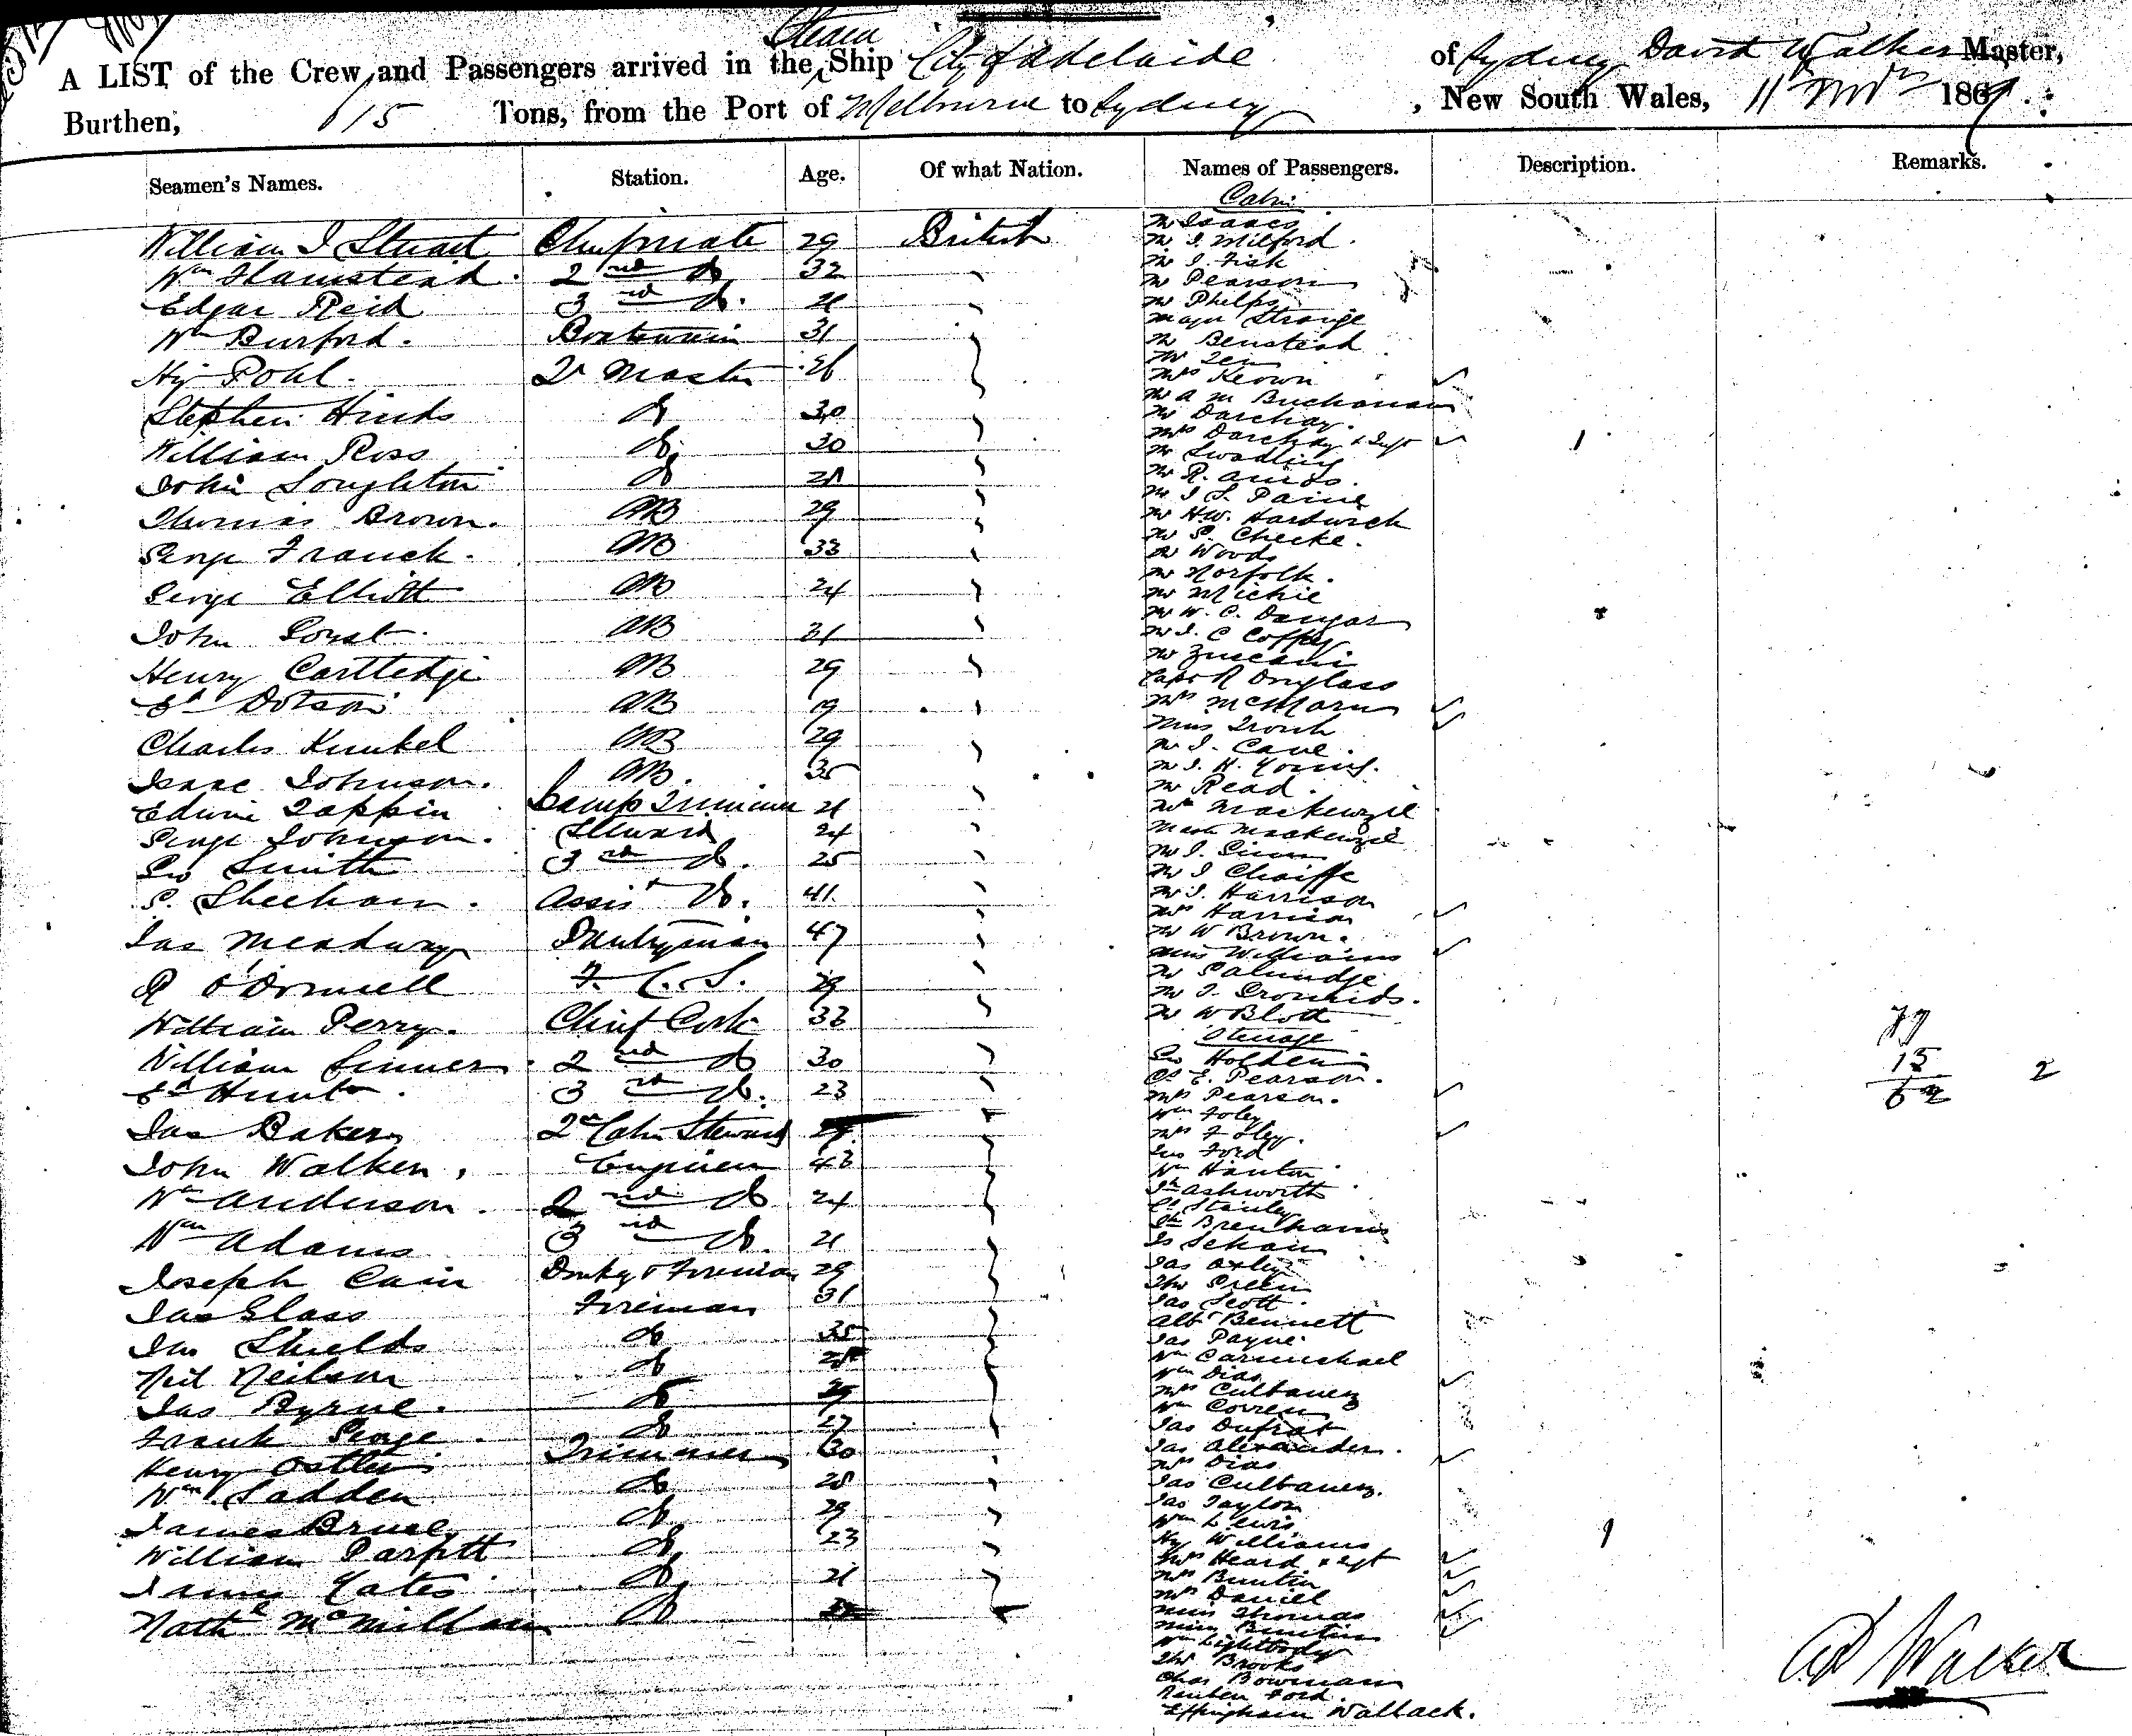 Steam
A LIST of the Crew and Passengers arrived in the Ship City of Adelaide of Sydney David Walker Master,
Burthen, 615 Tons, from the Port of Melbourne to Sydney, New South Wales, 11th Novr 1867.
Seamen's Names. Station. Age. Of what Nation. Names of Passengers. Description. Remarks.
Cabin
William J Stuart Chief mate 29 British
Wm Hamstead 2nd do 32
Edgar Reid 3rd do. 21
Wm Burford. Boatswain 31
Hy Pohl. Qr Master 26
Stephen Hinds do 30
William Ross do 30
John Loughton do
Thomas Brown. AB 29
George Franck. AB 33
George Elliott AB 24
John AB 31
Henry Cartledge AB 29
Ed Dotson AB 19
Charles Kunkel AB 29
Isaac Johnson. AB. 35
Edwin Tappin Lamp Trimmer 21
George Johnson. Steward 24
Geo Smith 3rd do. 25
S. Sheehan. Assist do. 41
Jas Meadway Pantryman 47
R O'Donnell F. C. S. 29
William Perry. Chief Cook 33
William 2nd do 30
Ed Hunt 3rd do. 23
Jas Baker 2nd Cabin Steward
John Walker. Engineer 43
Wm Anderson. 2nd do 24
Wm Adams 3rd do. 21
Joseph Cain Donkey & Fireman 29
Jas Glass Fireman 31
Jas Shields do 35
Neil Neilson do
Jas Byrne. do 29
Frank George. do 27
Henry Ostler Trimmer 30
Wm Sadden do 28
James Bruce do 29
William Parfitt do 23
Yates do 21
Nathl McMillan do
Mr Isaacs
Mr J. Milford.
Mr J. Fisk
Mr Pearson
Mr Phelps
Major Strange
Mr Benstead
Mrs Keown
Mr A M Buchanan
Mr Darchay.
Mrs Darchay & Inft
Mr Swadling
Mr R. Amos.
Mr J S. Paine
Mr H.W. Hardwick
Mr S. Cheeke.
Mr Woods
Mr Norfolk.
Mr Michie
Mr W. C. Dangar
Mr J. C Coffey
Mr Zuccani
Capt R Douglass
Mrs McMarn
Miss
Mr J. Cave.
Mr J. H. Young.
Mr Read.
Mrs Mackenzie
Mastr Mackenzie
Mr J.
Mr J Chaiffe
Mr J. Harrison
Mrs Harrison
Mr W Brown.
Miss Williams
Mr
Mr J.
Mr W Blott
Steerage
Geo Holden
Cs E. Pearson.
Mrs Pearson.
Wm Foley
Mrs Foley.
Geo Ford
Wm Hanton
Jh Ashworth
Cs Stanley
Jas Oxley
Thos Green
Jas Scott.
Albt Bennett
Jas Payne
Wm Carmichael
Wm Dias
Mrs Culbanez
Wm
Jas Dufrat
Jas Alexander.
Mrs Dias
Jas Culbanez.
Jas Taylor
Wm Lewis
Hy Williams
Mrs Heard & Inft
Mrs Buntin
Mrs Daniel
Miss Thomas
Miss Buntin
Wm Lightbody
Thos Brooks
Chas Bowman
Reuben Ford.
Effingham Wallack.
1
1
77
15
62 2
D Walker